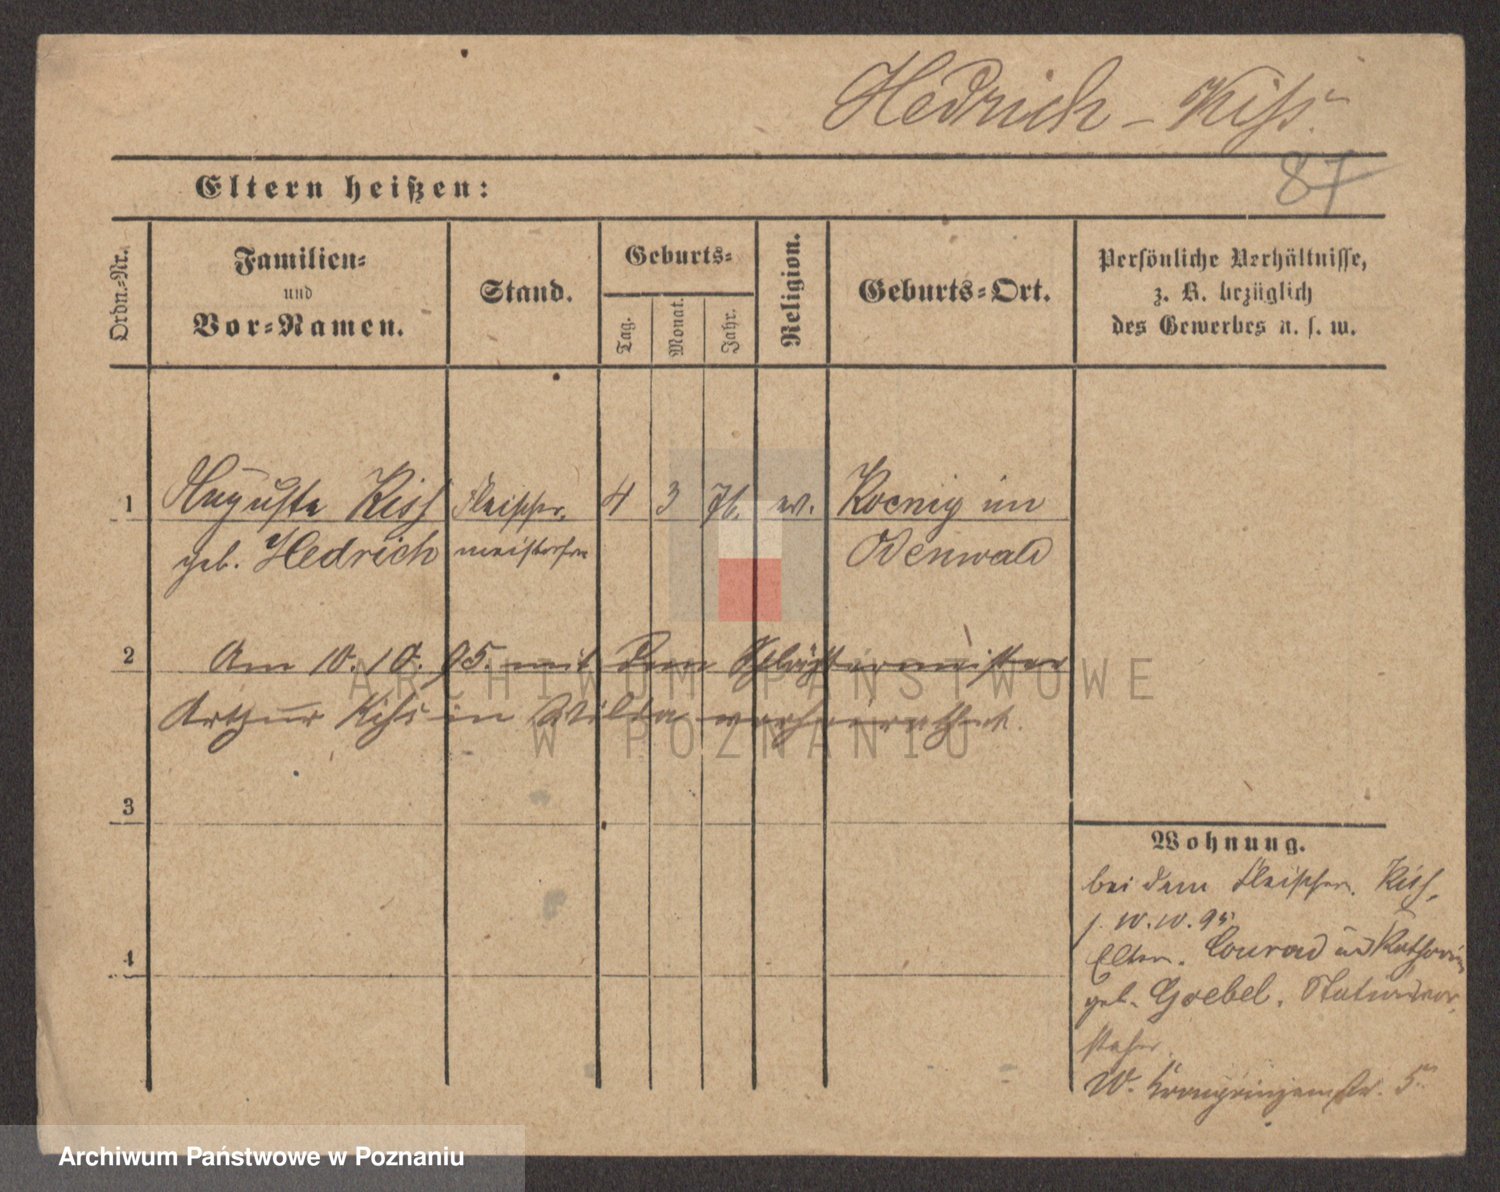 Hedrich - Kiss.
87
Eltern heißen:
Ordn.-Nr.
Familien-
und
Vor-Namen.
Stand.
Geburts-
Tag.
Monat.
Jahr.
Religion.
Geburts-Ort.
Persönliche Verhältnisse,
z. B. bezüglich
des Gewerbes u. s. w.
1 Auguste Kiss Fleischer- 4 3 76. ev. Koenig im
geb. Hedrich meistersfr. Odenwald
2 Am 10. 10. 95. mit dem Fleischermeister
Arthur Kiss in Wilda verheirathet.
3
4
Wohnung.
bei dem Fleischer. Kiss,
10.10.95.
Eltern. Conrad und Katharina
geb. Goebel. Stationsvor-
steher
W. Kronprinzenstr. 5
ARCHIWUM PAŃSTWOWE
W POZNANIU
Archiwum Państwowe w Poznaniu